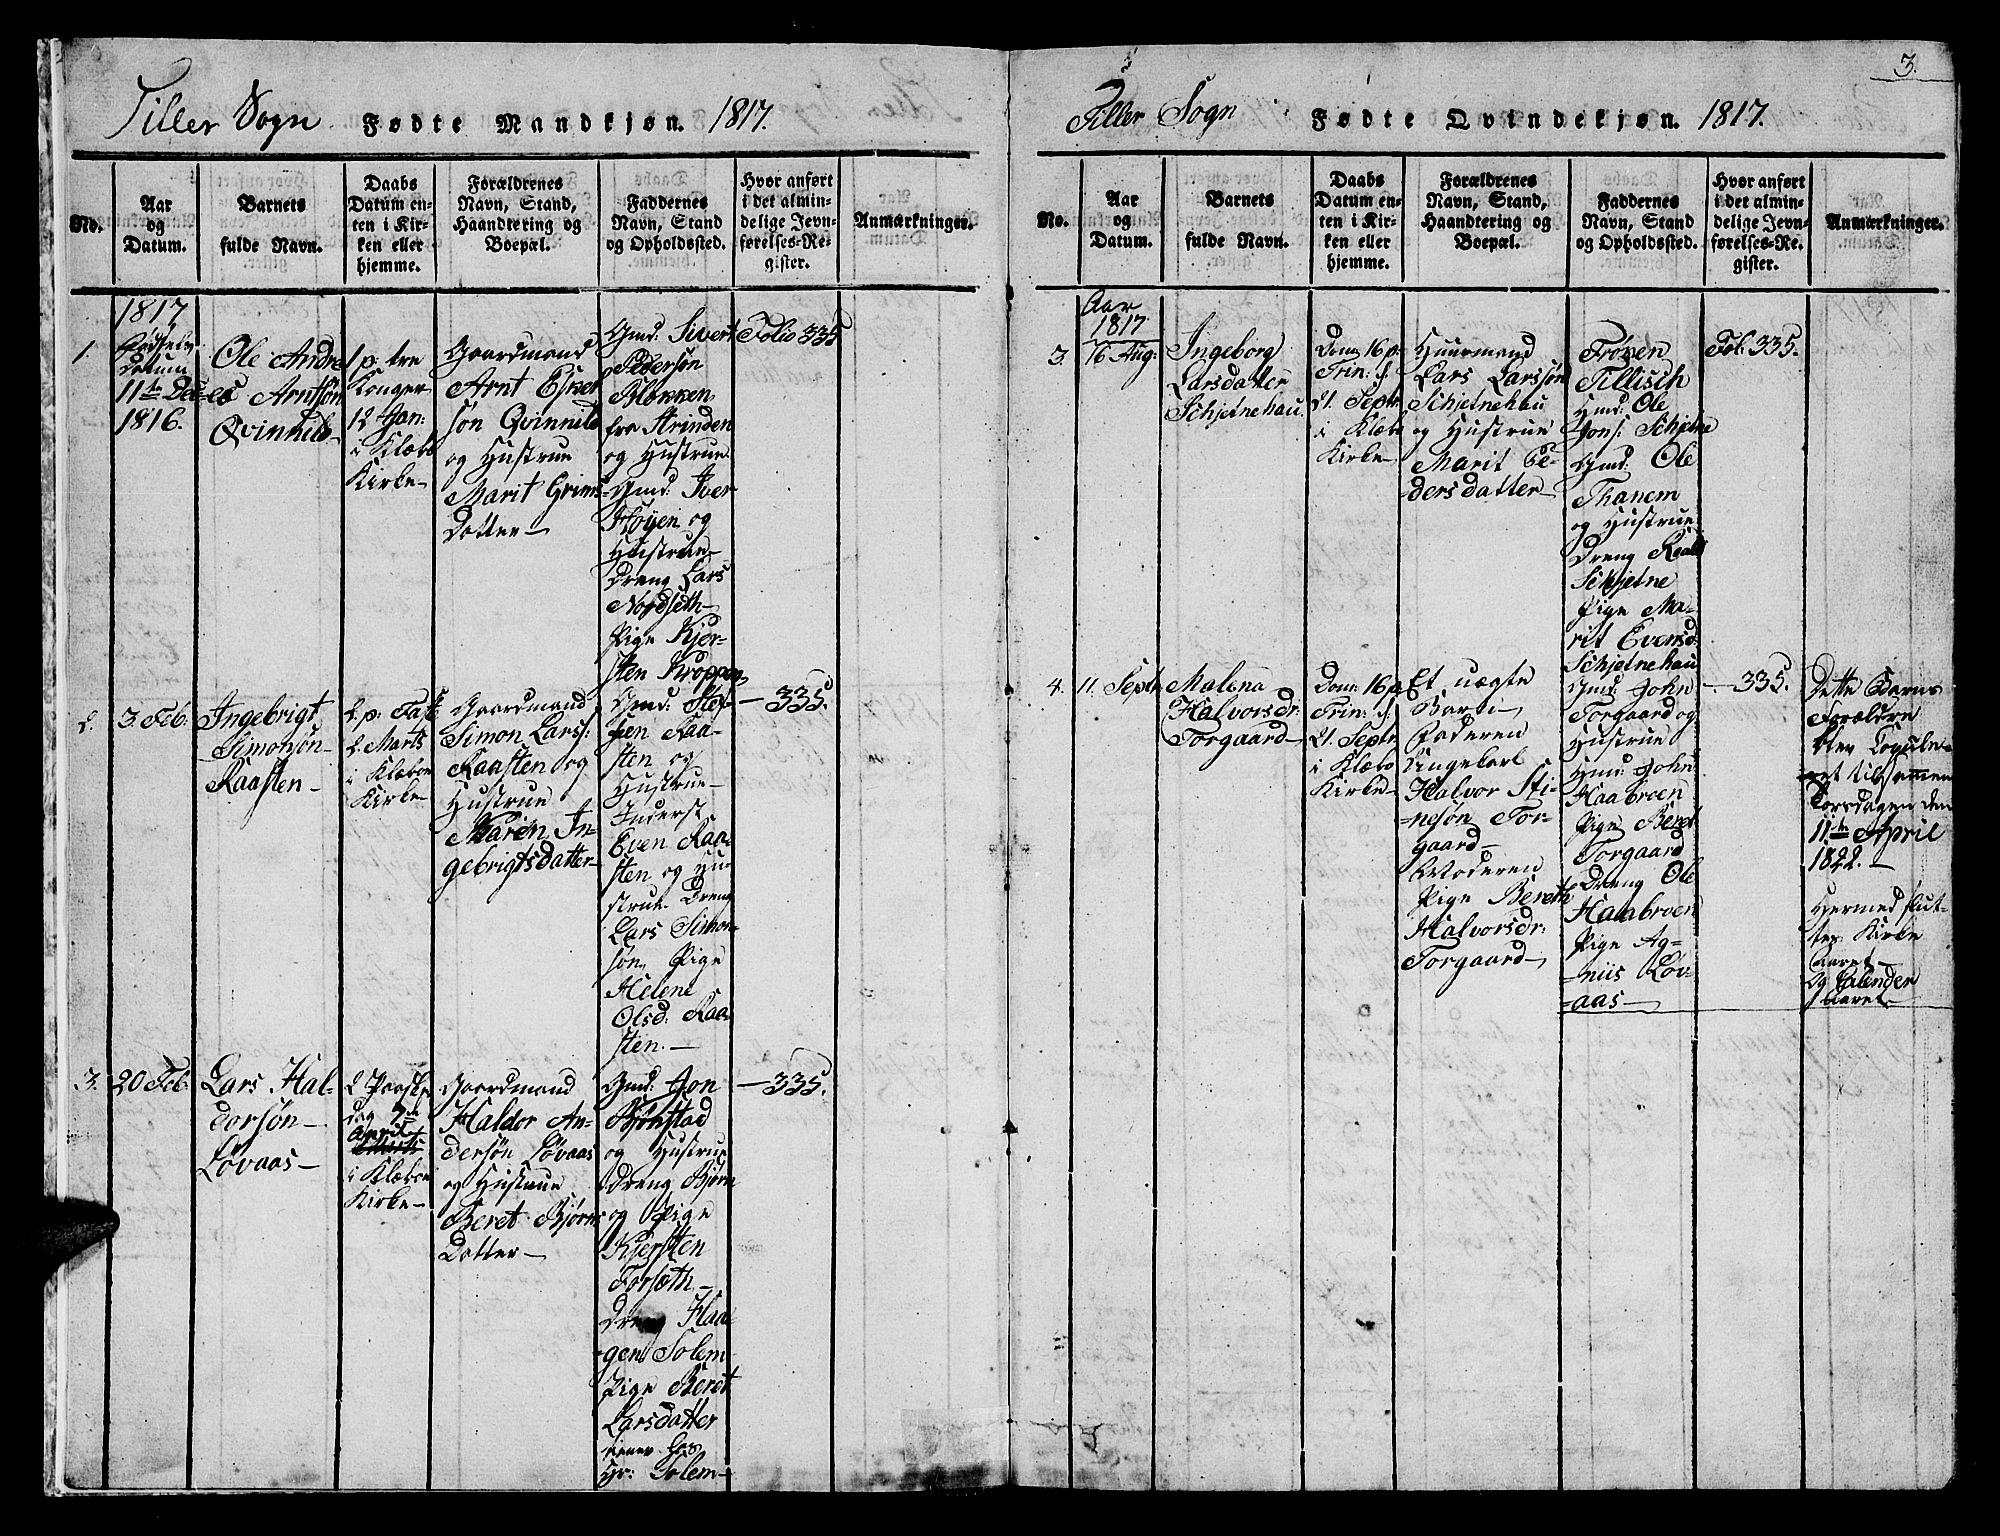 Tiller Sogn Fødte Mandkjøn. 1817.
No.
Aar
og
Datum.
Barnets
fulde Navn.
Daabs
Datum en-
ten i Kir-
ken eller
hjemme.
Forældrenes
Navn, Stand,
Haandtering og
Boepæl.
Faddernes
Navn, Stand
og Opholdssted.
Hvor anført
i det almin-
delige Jevn-
førelses-Re-
gister.
Anmærkninger.
1.
1817
Fødselv
Datum
11te Dec
1816.
Ole Andre
as Arntsøn
Qvinnild
1 p. tre
Konger
12 Jan:
i Klæbo
Kirke
Gaardmand
Arnt Esker
søn Qvinnild
og Hustrue
Marit Grims
Datter
Gmd: Sivert
Pedersøn
Blekken
fra Strinden
og Hustrue
Gmd: Iver
Høyen og
Hustrue
Dreng Lars
Nordseth
Pige Kjer-
sten Kroppen
Folio 335
2.
3. Feb.
Ingebrigt
Simonsøn
Raasten
2. p: Fast
2. Marts
i Klæboe
Kirke
Gaardmand
Simon Lars:
Raasten og
Hustrue
Karen In-
gebrigtsdatter
Gmd: Stef-
fen Raa-
sten og
Hustrue
Inderst
Even Raa-
sten og Hu-
strue. Dreng
Lars Simon-
søn, Pige
Helene
Olsd: Raa-
sten.
335.
3.
20 Feb.
Lars Hal-
dorsøn
Løvaas
2 Paaske
dag 7de
April
i Klæboe
Kirke
Gaardmand
Haldor An-
dersøn Løvaas
og Hustrue
Beret Bjørns
Datter
Gmd: Jon
Bjønstad
og Hustrue
Dreng Bjørn
og Pige
Kjersten
Forsæth
Dreng Haa-
gen Solem
Pige Beret
Larsdatter
tjener hos
Hr: Solem
335.
3.
Tiller Sogn Fødte Qvindekjøn. 1817.
No.
Aar
og
Datum.
Barnets
fulde Navn.
Daabs
Datum en-
ten i Kir-
ken eller
hjemme.
Forældrenes
Navn, Stand,
Haandtering og
Boepæl.
Faddernes
Navn, Stand
og Opholdssted.
Hvor anført
i det almin-
delige Jevn-
førelses-Re-
gister.
Anmærkninger.
3.
Aar
1817
16 Aug:
Ingeborg
Larsdatter
Schjetnehau.
Dom: 16 p:
Trin: d.
21. Septr.
i Klæbo
Kirke
Huusmand
Lars Larssøn
Schjetnehau
og Hustrue
Marit Pe-
dersdatter
Frøken
Tillisch
Hmd: Ole
Jons: Schjetne
Gmd: Ole
Thanem
og Hustrue
Dreng
Schjetne
Pige Ma-
rit Evensd.
Schjetnehau
Fol. 335.
4.
11. Septr
Malena
Halvorsdr:
Torgaard
Dom: 16 p.
Trin: d.
21. Septr
i Klæbo
Kirke
Et uægte
Barn
Faderen
Ungekarl
Halvor Sti-
nesøn Tor-
gaard
Moderen
Pige Bereth
Halvorsdr:
Torgaard
Gmd: John
Torgaard og
Hustrue
Hmd: John
Haabroen
Pige Beret
Torgaard
Dreng Ole
Haabroen
Pige Ag-
niis Løv-
aas
335.
Dette Barns
Forældre
blev Copule-
ret tilsammen
Torsdagen den
11te April
1822.
Hermed slut-
tes Kirke
Aaret
Og Calender
Aaret